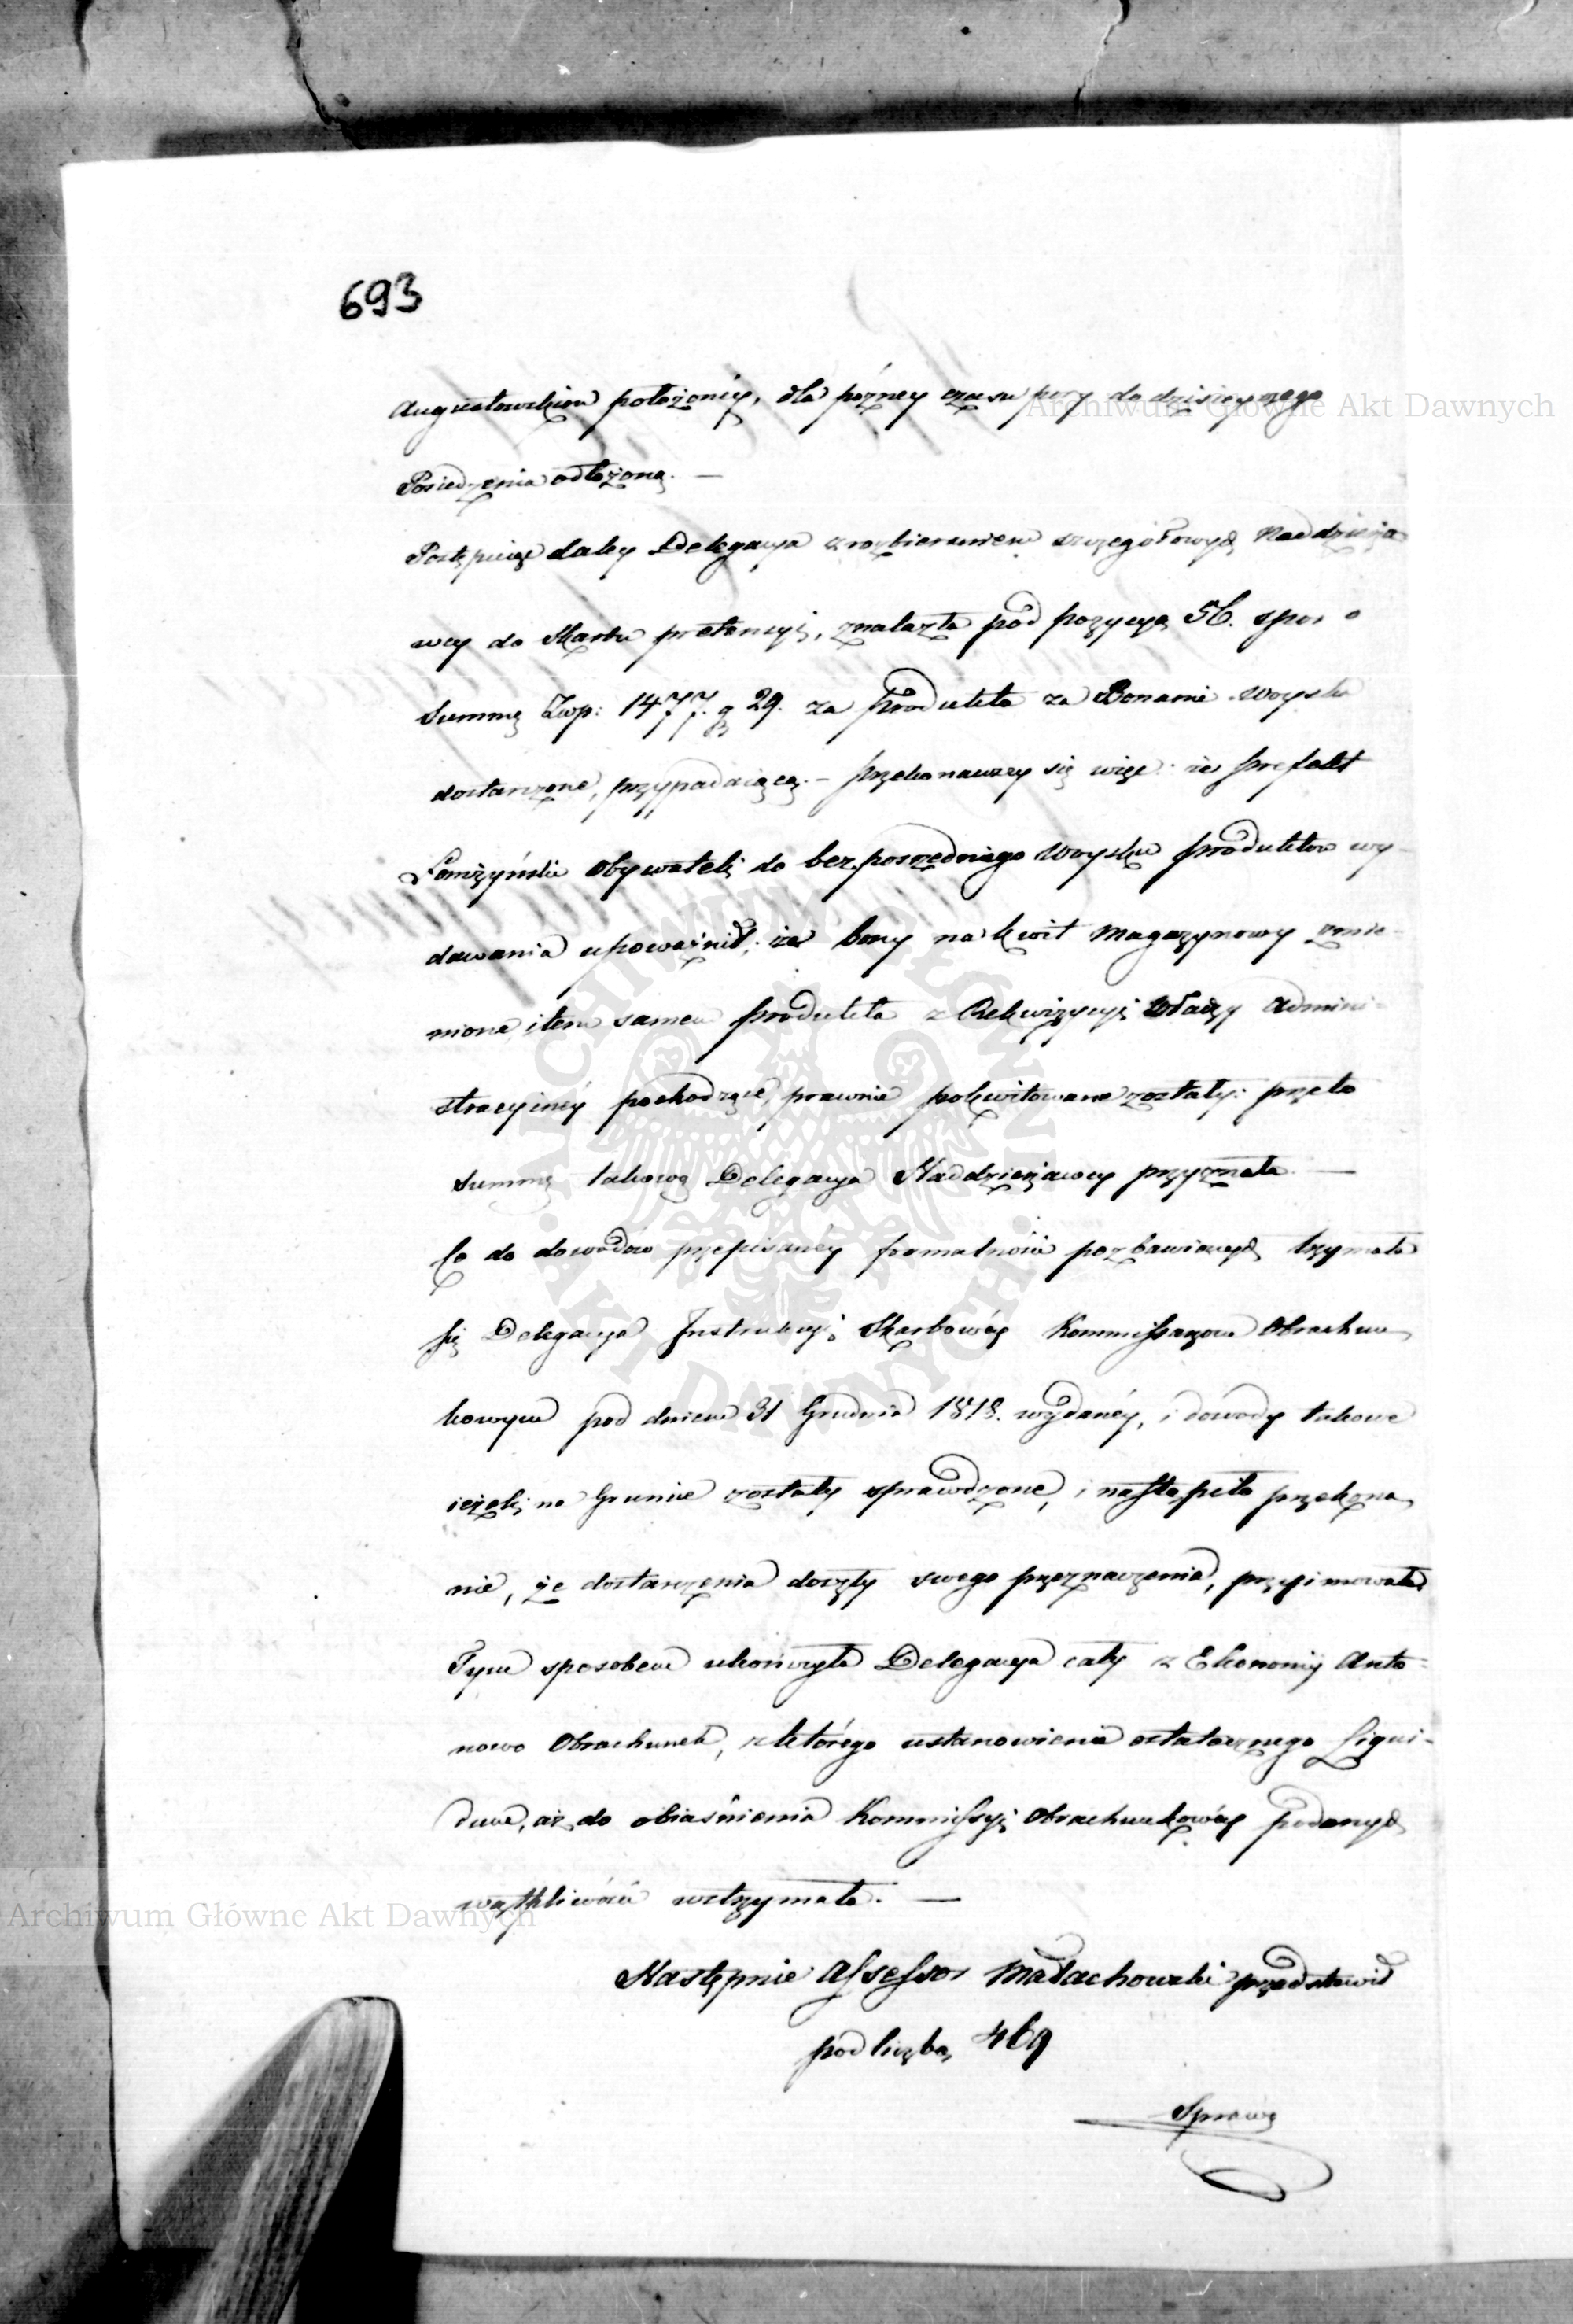 693
Augustowskiem położonéy, dla późney czasu pory do dzisieyszego
Posiedzenia odłożoną. —
Postępuiąc daley Delegacya z rozbieraniem szczegółowych Naddzierża
wcy do Skarbu pretensyi, znalazła pod pozycyą 56. spor o
Summę Złwp: 1477. g 29. za Produkta za Bonami Woysku
dostarczone, przypadaiącą. – Przekonawszy się więc: że Prefekt
Łomżyński Obywateli do bezpośredniego Woysku Produktow wy-
dawania upoważnił; że bony na kwit Magazynowy zmie-
nione, i tem samem Produkta z Rekwizycyi Władzy Admini-
stracyinéy pochodzące, prawnie pokwitowane zostały: przeto
Summę takową Delegacya Naddzierżawcy przyznała. —
Co do dowodów przepisanéy formalności pozbawionych trzymała
się Delegacya Instrukcyi Skarbowéy Kommissarzom Obrachun
kowym pod dniem 31 Grudnia 1818. wydanéy, i dowody takowe
ieżeli na Gruncie zostały sprawdzone, i nastąpiło przekona
nie, że dostarczenia doszły swego przeznaczenia, przyimowała.
Tym sposobem ukończyła Delegacya cały z Ekonomii Anto-
nowo Obrachunek, z którego ustanowienie ostatecznego Liqui-
dum, aż do obiaśnienia Kommissyi Obrachunkowéy podanych
wątpliwości wstrzymała. —
Następnie Assessor Małachowski przedstawił
pod liczbą 469
Sprawę
Archiwum Główne Akt Dawnych
Archiwum Główne Akt Dawnych
ARCHIWUM GŁÓWNE AKT DAWNYCH